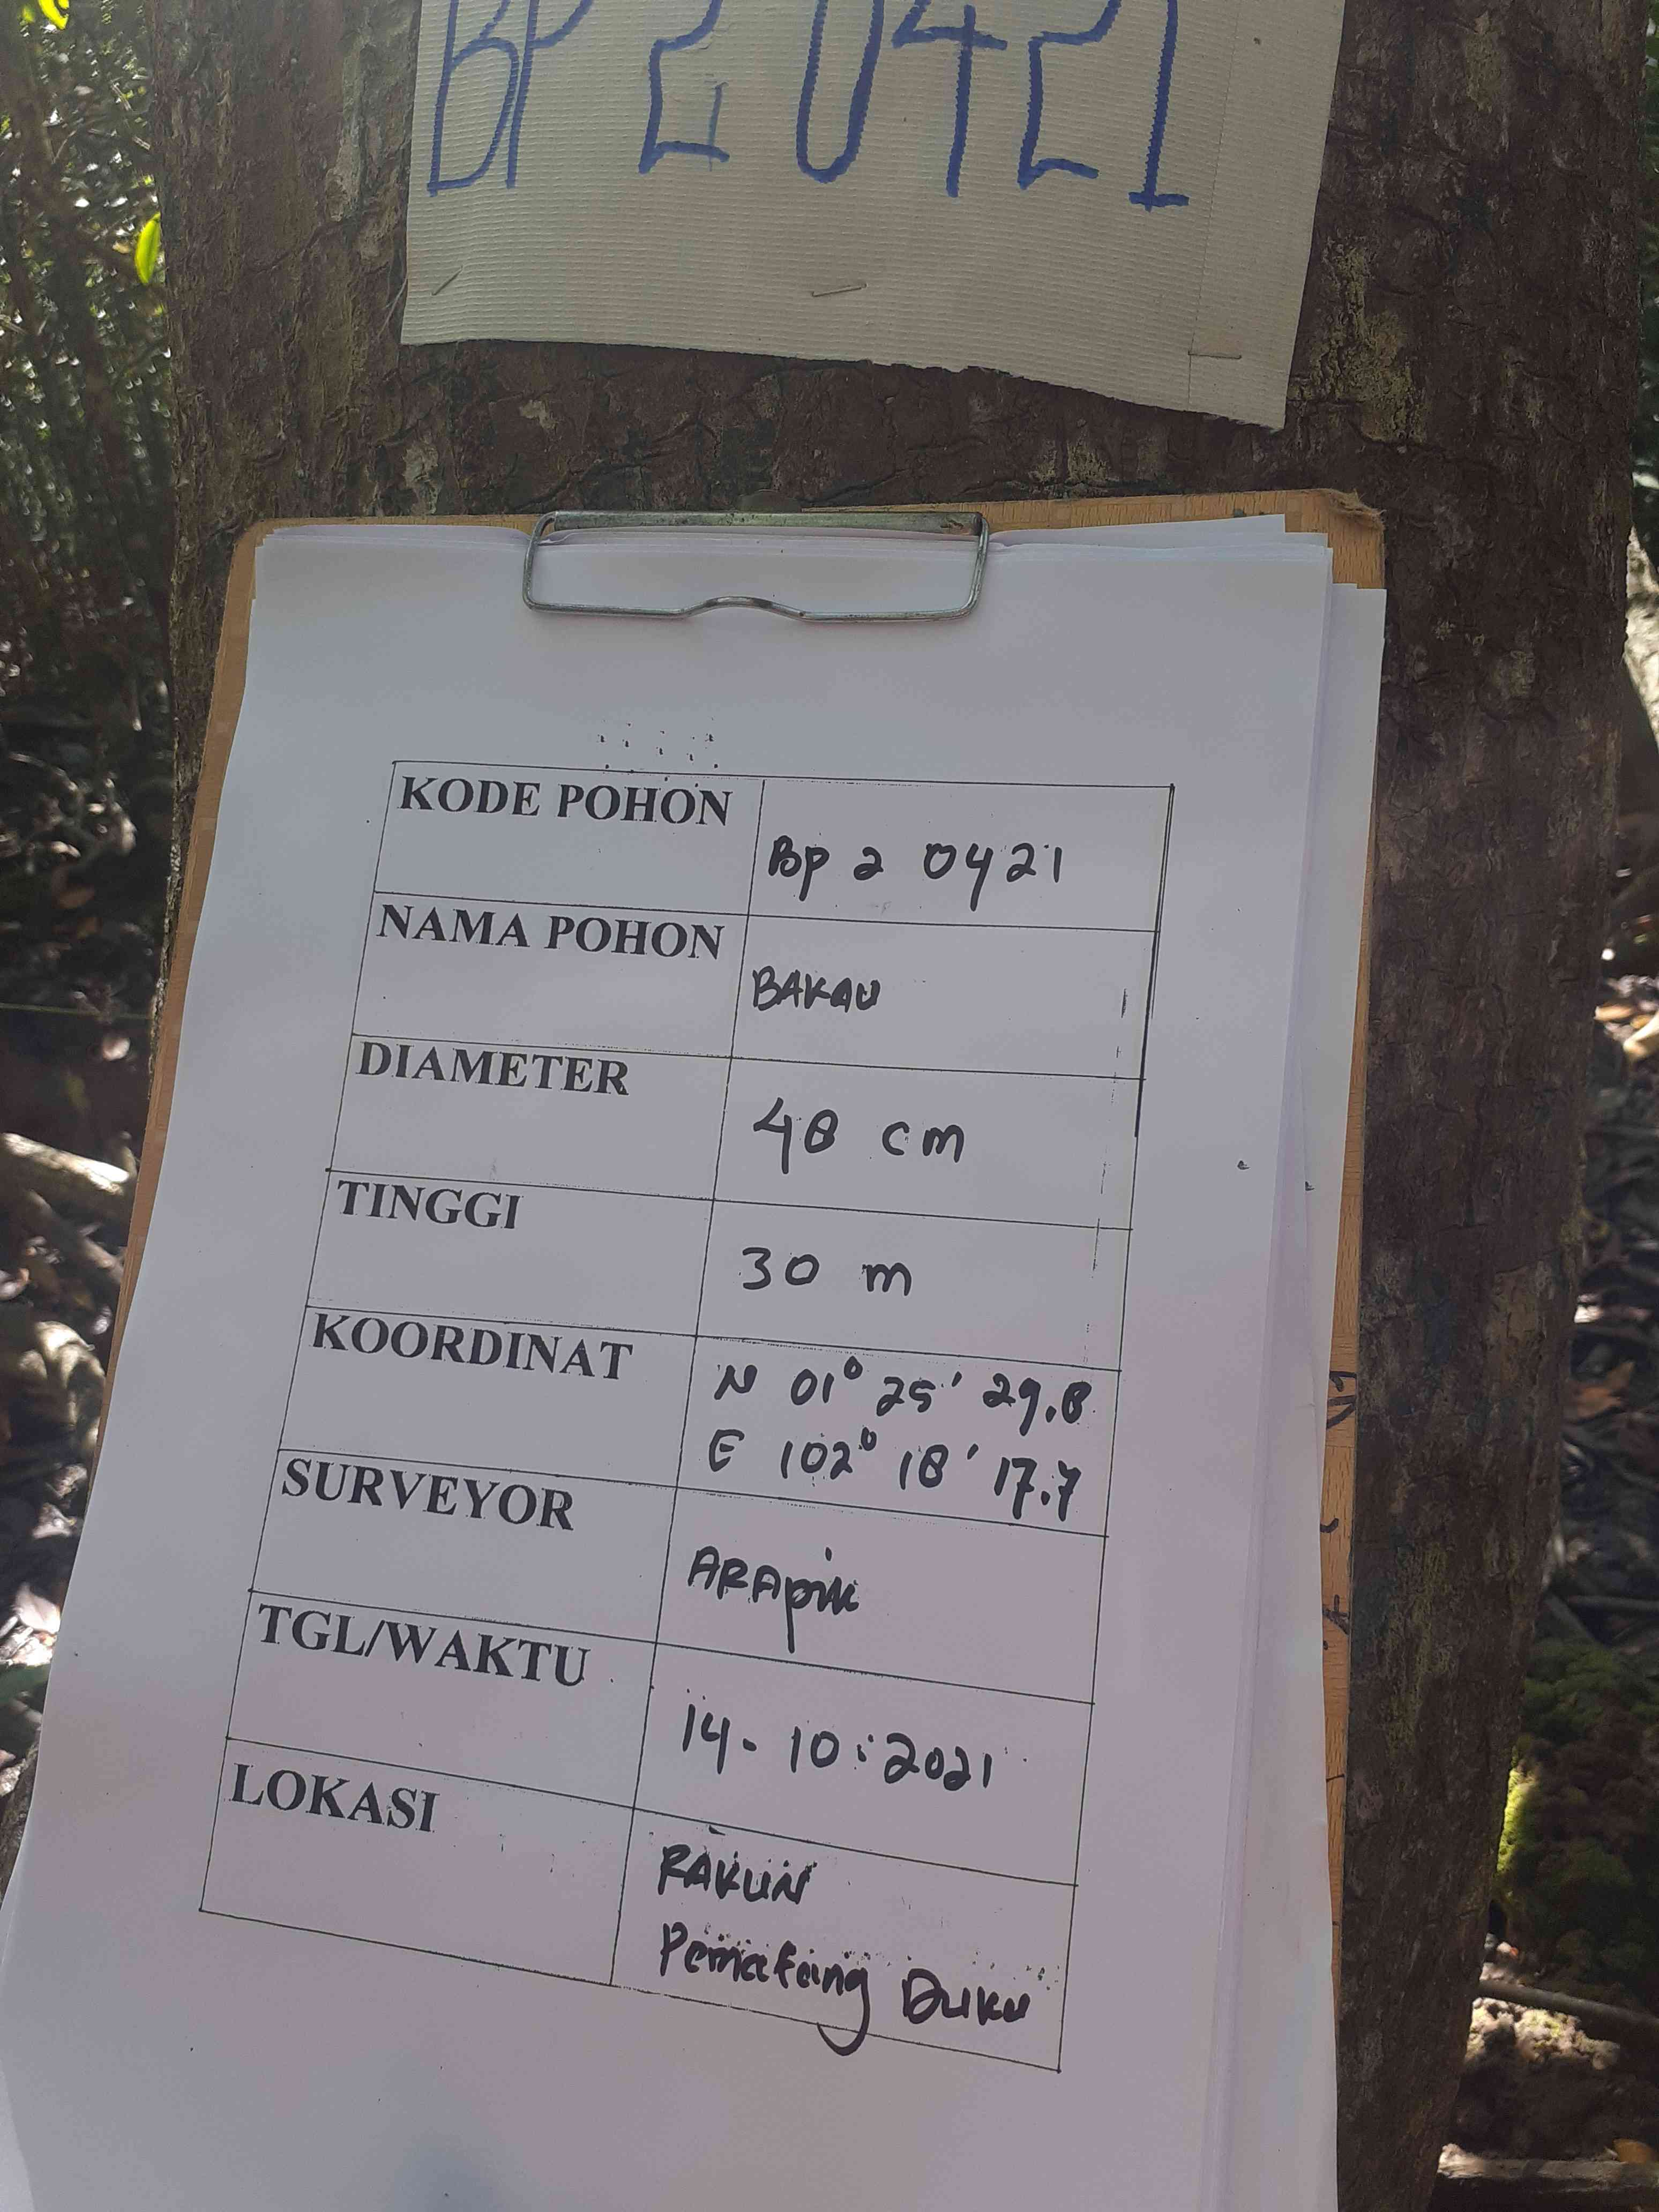 BP 2 0421
KODE POHON
Bp 2 0421
NAMA POHON
BAKAU
DIAMETER
48 cm
TINGGI
30 m
KOORDINAT
N 01° 25' 29.8
E 102° 18' 17.7
SURVEYOR
ARApik
TGL/WAKTU
14. 10:2021
LOKASI
RAKUN
Pematang Duku